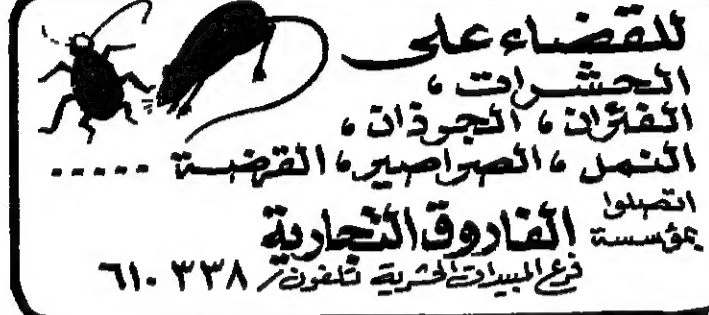 للقضاء على
الحشرات ،
الفئران ، الجرذان ،
النمل ، الصراصير ، القرضة .....
اتصلوا
بمؤسسة الفاروق التجارية
فرع المبيدات الحشرية تلفون / ٦١٠٣٣٨